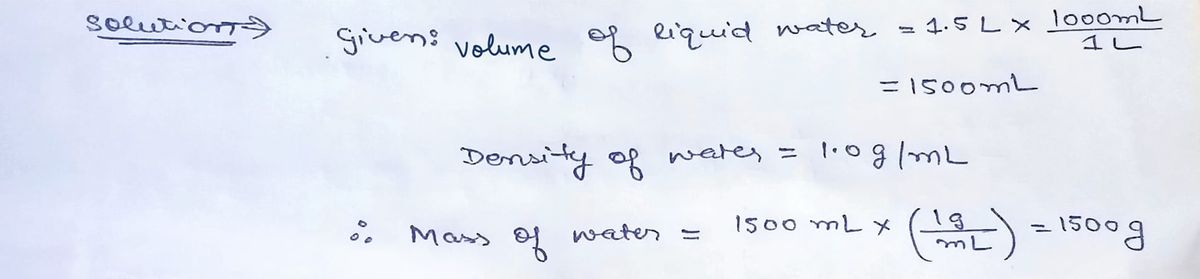 Solution→ Given: Volume of liquid water = 1.5 L × 1000mL / 1 L
= 1500mL
Density of water = 1.0 g/mL
∴ Mass of water = 1500 mL × (1g / mL) = 1500g